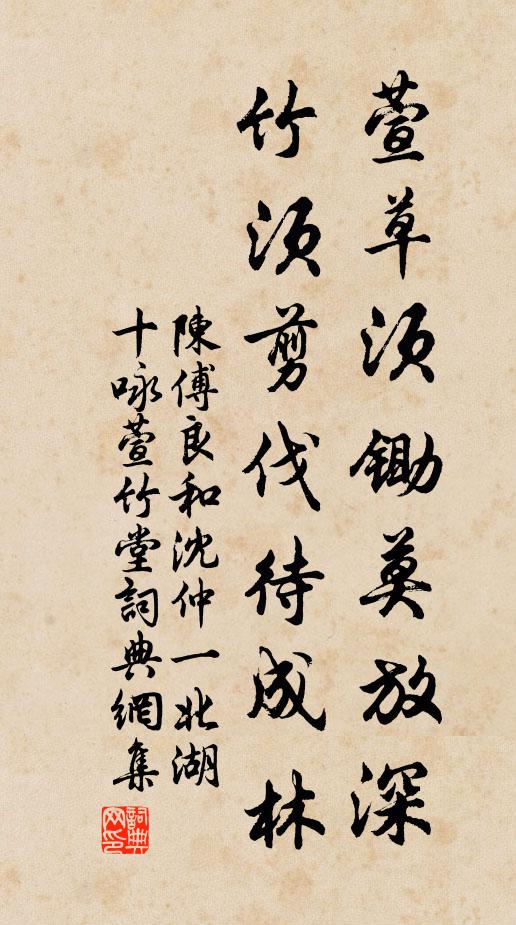 萱草須鋤莫放深
竹須剪伐待成林
陳傅良和沈仲一北湖
十咏萱竹堂詞典網集
詞典网印